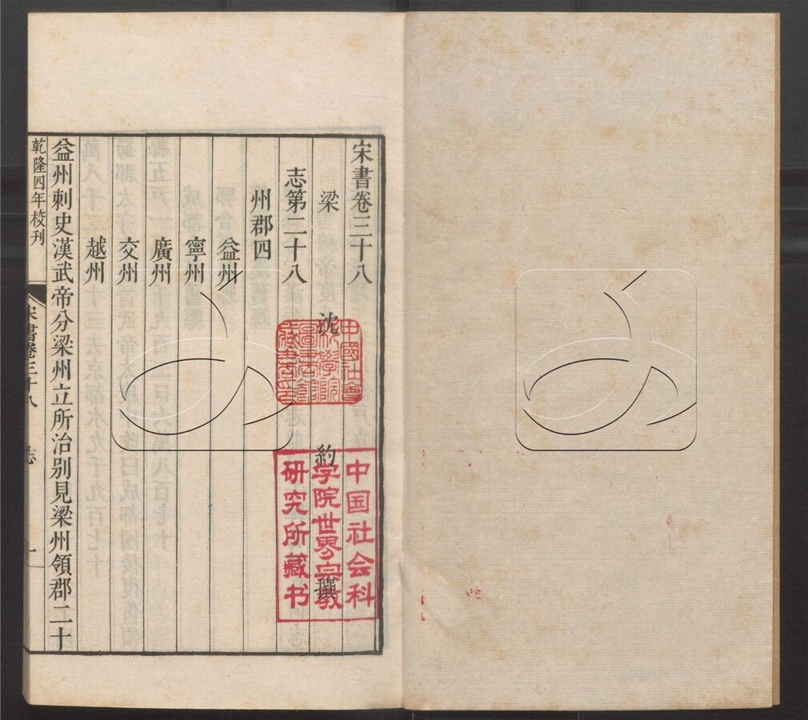 宋書卷三十八
梁 沈 約 撰
志第二十八
州郡四
益州
寧州
廣州
交州
越州
益州刺史漢武帝分梁州立所治別見梁州領郡二十
乾隆四年校刊
宋書卷三十八 志 一
中國社會
科學院
圖書館
藏書印
中国社会科
学院世界宗教
研究所藏书